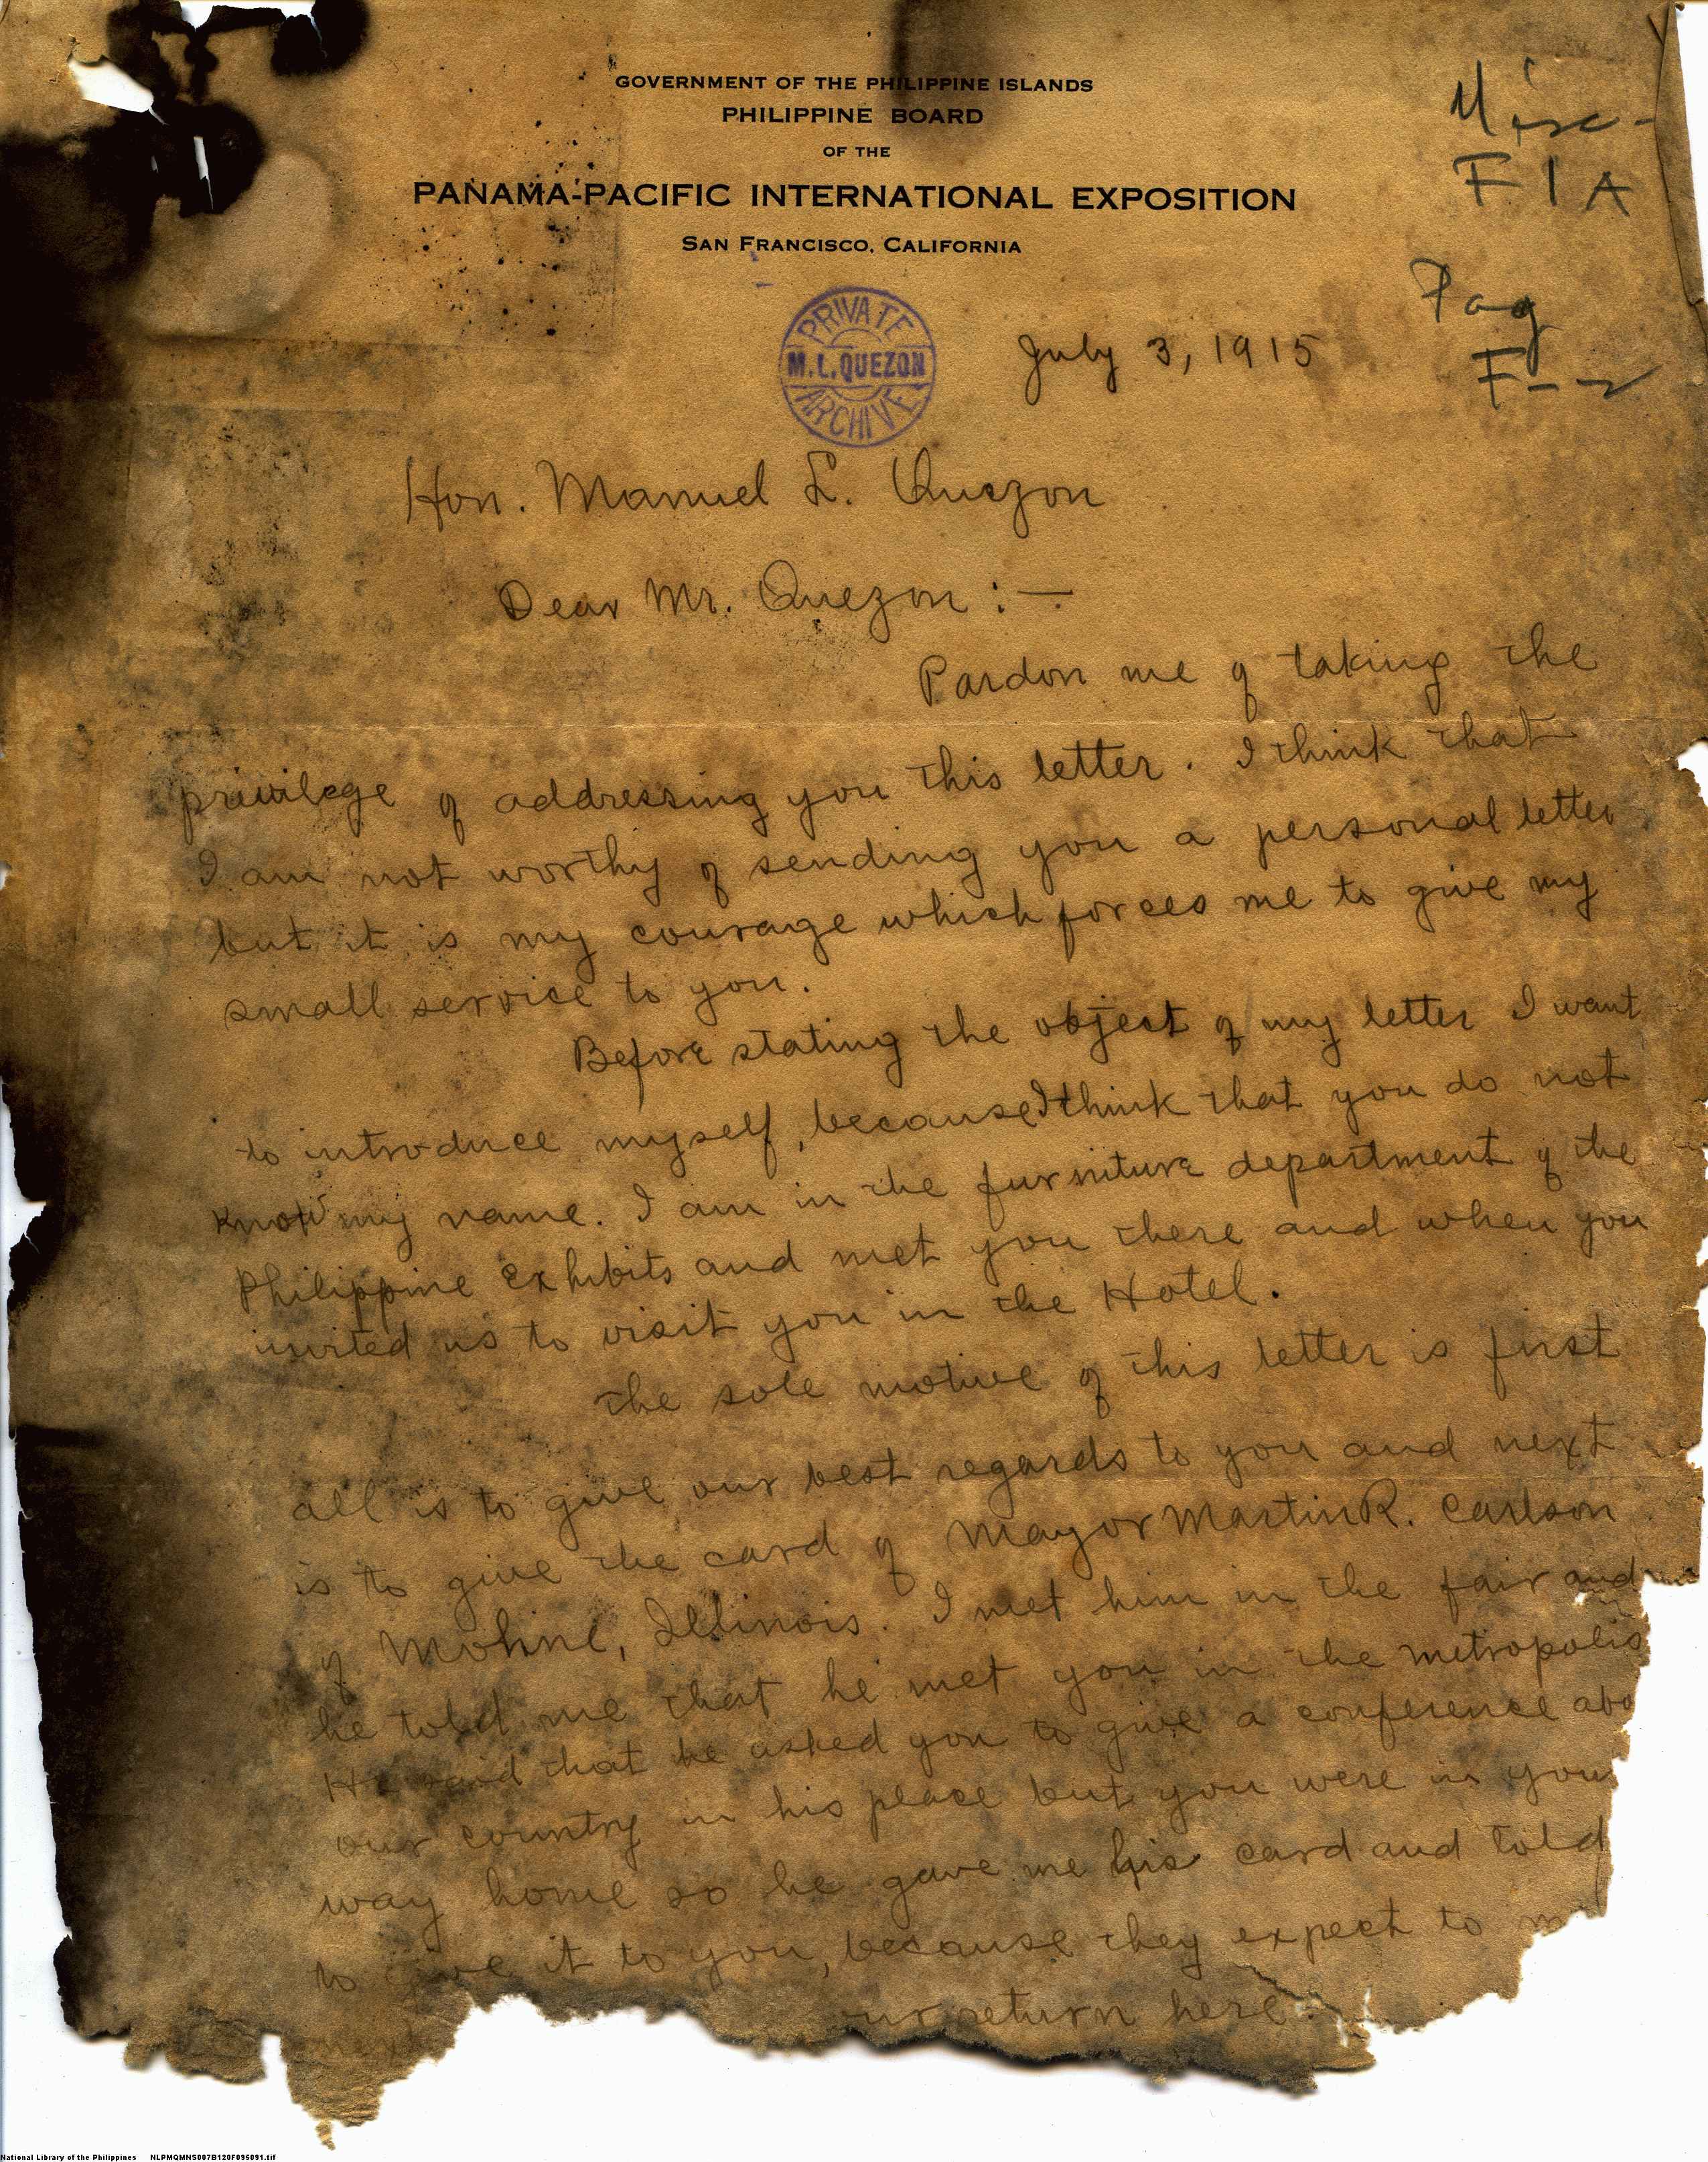 GOVERNMENT OF THE PHILIPPINE ISLANDS
PHILIPPINE BOARD
OF THE
PANAMA-PACIFIC INTERNATIONAL EXPOSITION
SAN FRANCISCO, CALIFORNIA
Misc-
F 1 A
Pag
F--2
PRIVATE
M.L.QUEZON
ARCHIVE
July 3, 1915
Hon. Manuel L. Quezon
Dear Mr. Quezon :—
Pardon me of taking the
privilege of addressing you this letter. I think that
I am not worthy of sending you a personal letter
but it is my courage which forces me to give my
small service to you.
Before stating the object of my letter I want
to introduce myself, because I think that you do not
know my name. I am in the furniture department of the
Philippine Exhibits and met you there and when you
invited us to visit you in the Hotel.
The sole motive of this letter is first
all is to give our best regards to you and next
is to give the card of Mayor Martin R. Carlson
of Moline, Illinois. I met him in the fair and
he told me that he met you in the metropolis
He said that he asked you to give a conference abo
our country in his place but you were in your
way home so he gave me his card and told
to give it to you, because they expect to
next
return here.
National Library of the Philippines NLPMQMNS007B120F095091.tif